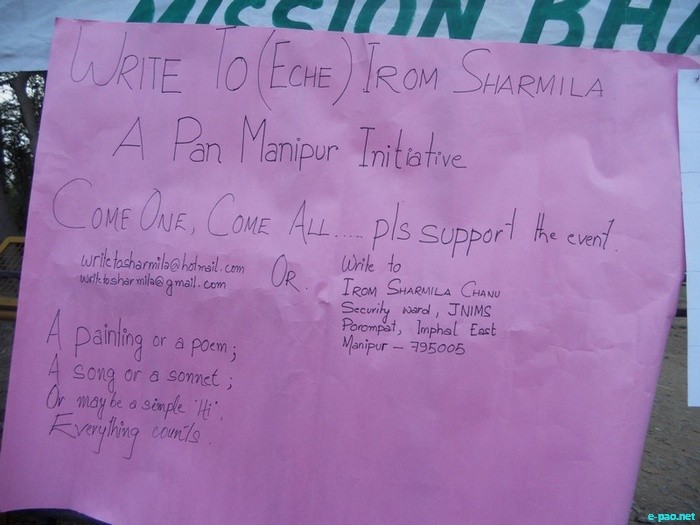 MISSION BHA
WRITE TO (ECHE) IROM SHARMILA
A Pan Manipur Initiative
COME ONE, COME ALL..... pls support the event.
writetosharmila@hotmail.com
writetosharmila@gmail.com
OR.
Write to
IROM SHARMILA CHANU
Security ward, JNIMS
Porompat, Imphal East
Manipur – 795005
A painting or a poem;
A song or a sonnet;
Or maybe a simple 'Hi'.
Everything counts.
e-pao.net